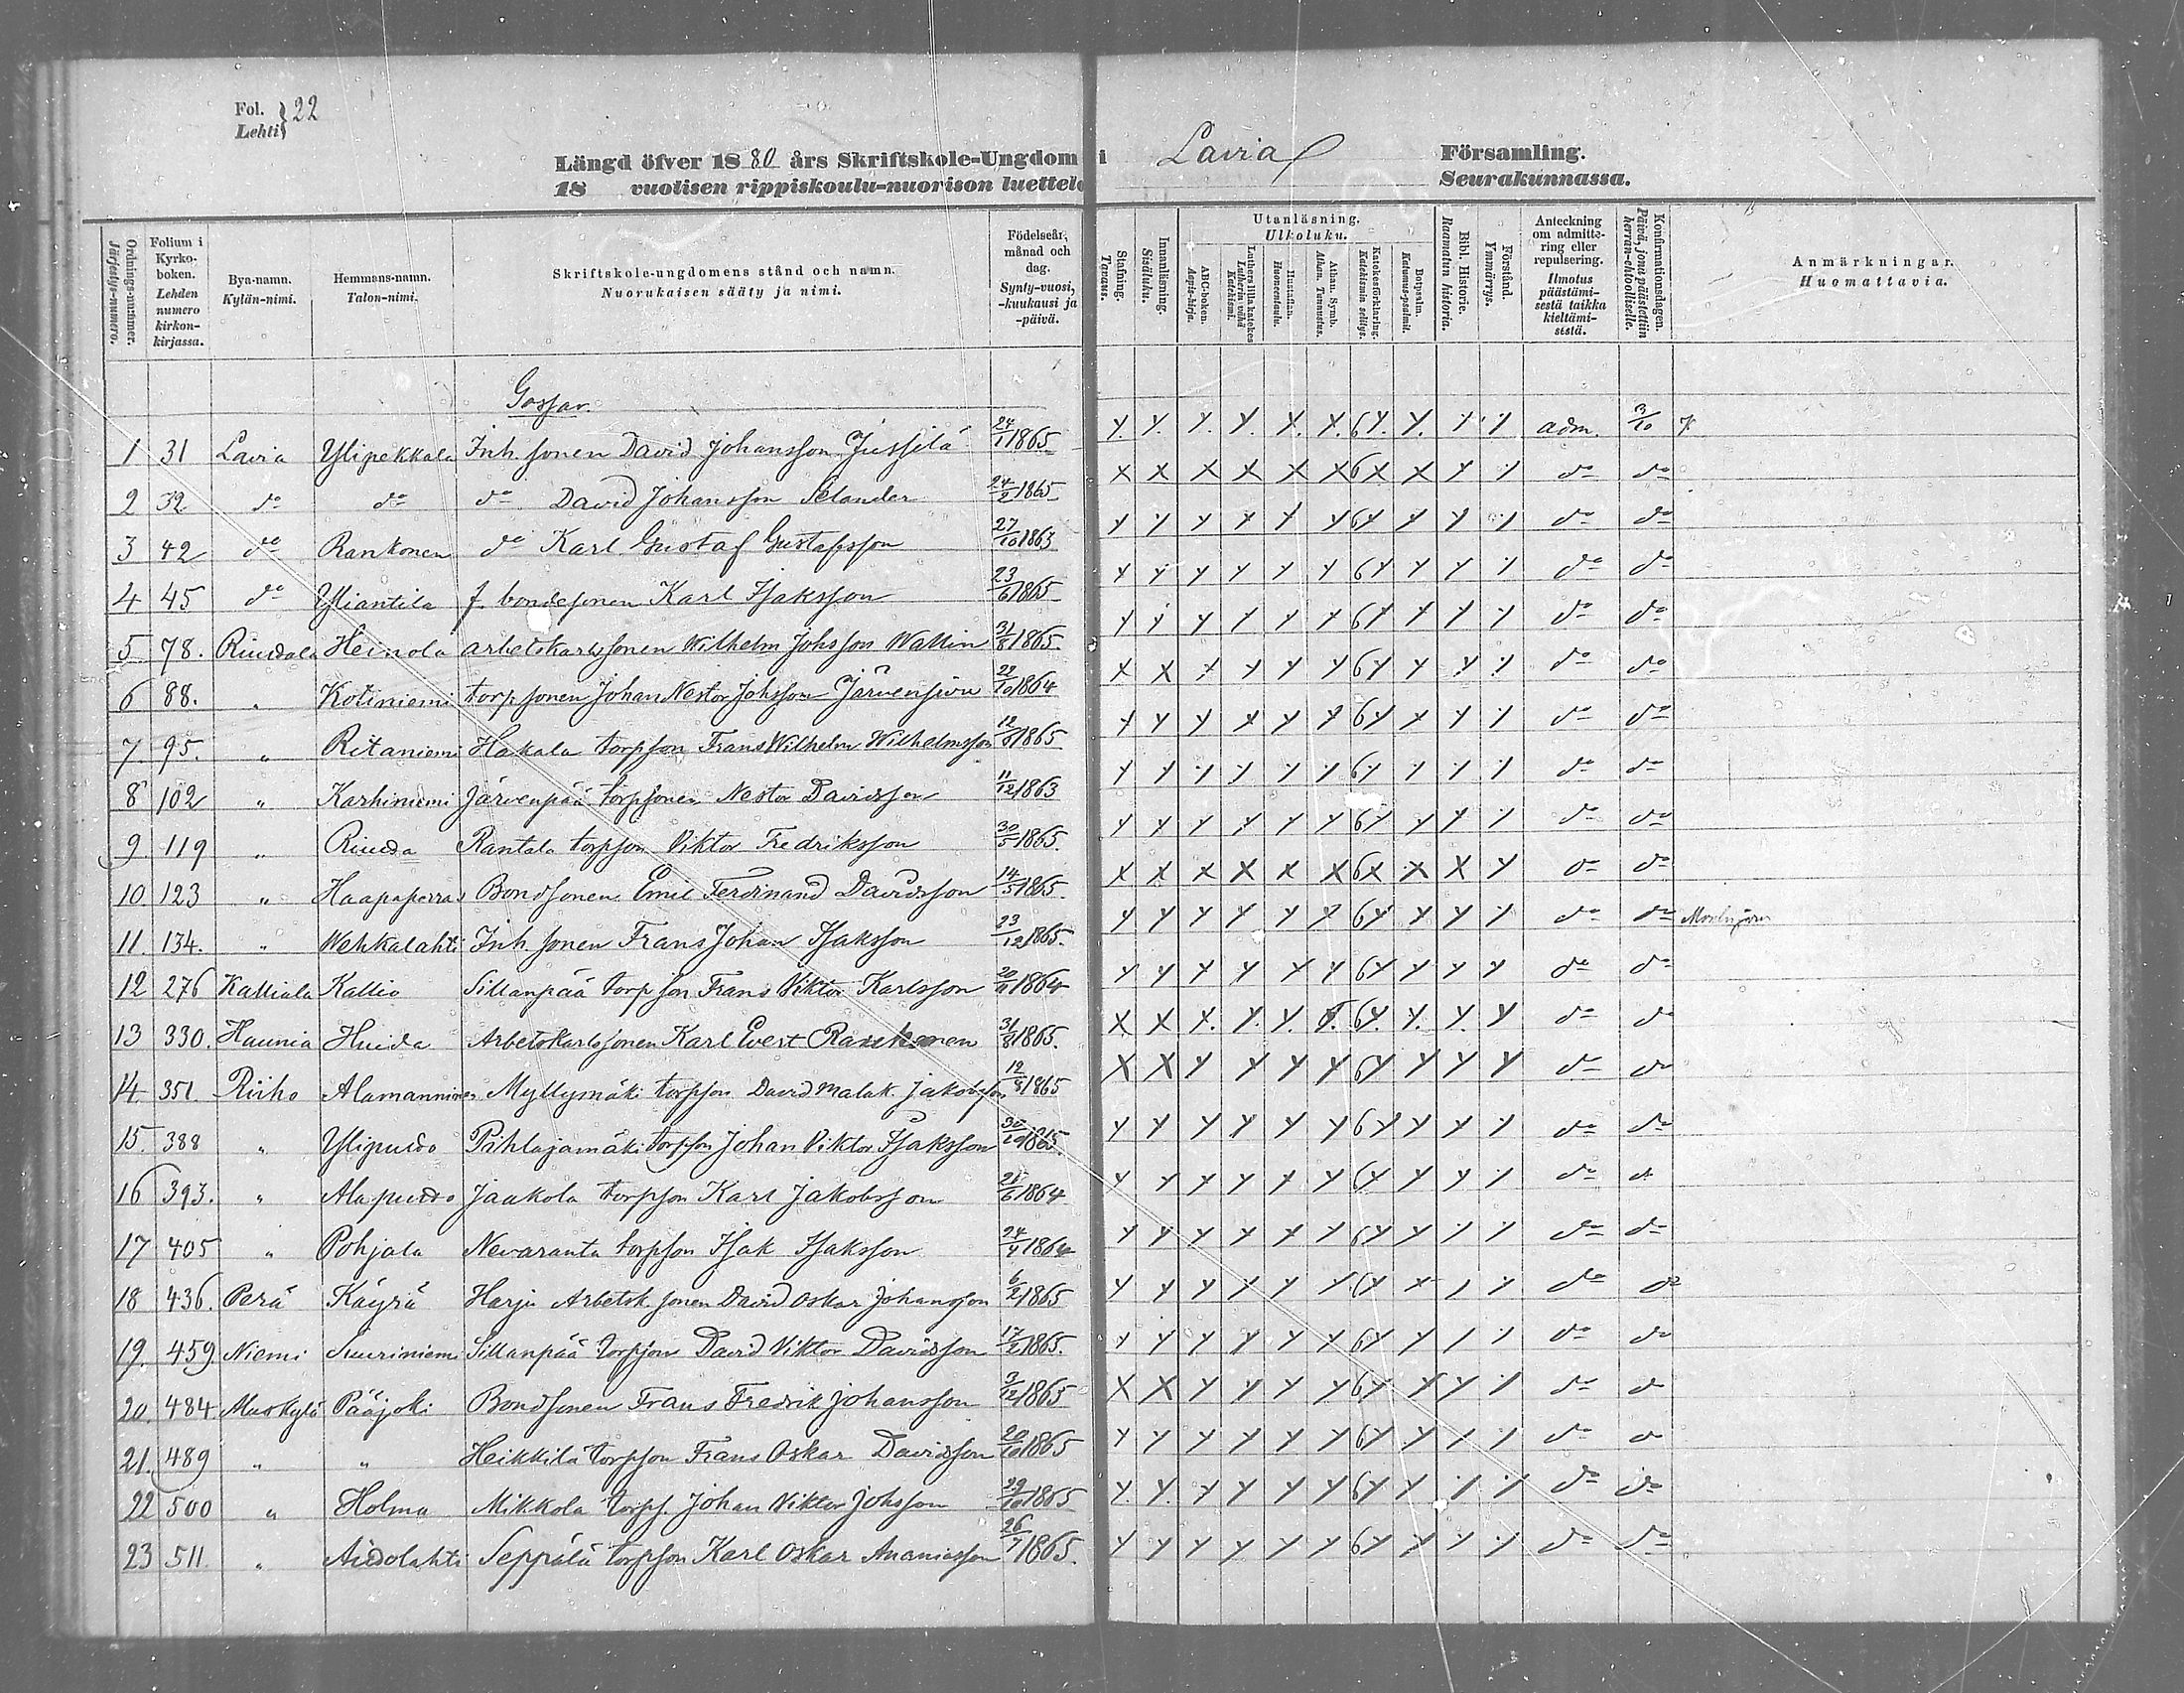 Fol. Lehti } 22
Längd öfver 1880 års Skriftskole-Ungdom i Lavia Församling.
18 vuotisen rippiskoulu-nuorison luettelo Seurakunnassa.
Ordnings-nummer. Järjestys-numero.
Folium i Kyrko-boken. Lehden numero kirkon-kirjassa.
Bya-namn. Kylän-nimi.
Hemmans-namn. Talon-nimi.
Skriftskole-ungdomens stånd och namn. Nuorukaisen sääty ja nimi.
Födelseår, månad och dag. Synty-vuosi, -kuukausi ja -päivä.
Stafning. Tavaus.
Innanläsning. Sisäluku.
Utanläsning. Ulkoluku.
ABC-boken. Aapis-kirja.
Luthers lilla katekes Lutherin vähä Katekismi.
Hustaflan. Huoneentaulu.
Athan. Symb. Athan. Tunnustus.
Katekesförklaring. Katekismin selitys.
Botpsalm. Katumus-psalmit.
Bibl. Historie. Raamatun historia.
Förstånd. Ymmärrys.
Anteckning om admittering eller repulsering. Ilmotus päästämisestä taikka kieltämisestä.
Konfirmationsdagen. Päivä, jona päästettiin herran-ehtoolliselle.
Anmärkningar. Huomattavia.
Gossar.
1 31 Lavia Ylipekkala Inh. sonen David Johansson Jussila 24/1 1865 adm. 3/10
2 32 do do do David Johansson Selander 24/2 1865 do do
3 42 do Rankonen do Karl Gustaf Gustafsson 27/10 1863 do do
4 45 do Yliantila f. bondesonen Karl Isaksson 23/6 1865 do do
5 78. Riudala Heinola arbetskarlssonen Wilhelm Johsson Wallin 31/8 1865. do do
6 88. " Kotiniemi torp. sonen Johan Nestor Johsson Järvensivu 22/10 1864 do do
7. 95. " Ritaniemi Hakala torpson Frans Wilhelm Wilhelmsson 1865 do do
8 102 " Karhiniemi Järvenpää torpsonen Nestor Davidsson 11/12 1863 do do
9. 119 " Riuda Rantala torpson Viktor Fredriksson 30/5 1865. do do
10. 123 " Haapaperras Bondsonen Emil Ferdinand Davidsson 14/5 1865. do do
11. 134. " Wehkalahti Inh. sonen Frans Johan Isaksson 23/12 1865. do do
12 276 Kalliala Kallio Sillanpää torpson Frans Viktor Karlsson 1864 do do
13 330. Haunia Huida Arbetskarlssonen Karl Evert Rankonen 31/8 1865. do do
14. 351. Riiho Alamanninen Myllymäki torpson David Malak. Jakobsson 1865 do do
15. 388 " Ylipuido Pihlajamäki torpson Johan Viktor Isaksson 30/10 1865. do do
16 393. " Alapuido Jaakola torpson Karl Jakobsson 28/6 1864 do do
17 405 " Pohjala Nevaranta torpson Isak Isaksson 24/4 1864 do do
18 436. Perä Käyrä Harju Arbetsk. sonen David Oskar Johansson 6/2 1865 do do
19. 459. Niemi Suuriniemi Sillanpää torpson David Viktor Davidsson 17/2 1865. do do
20. 484 Muskylä Pääjoki Bondsonen Frans Fredrik Johansson 3/12 1865 do do
21. 489 " " Heikkilä torpson Frans Oskar Davidsson 20/10 1865 do do
22 500 " Holma Mikkola torps. Johan Viktor Johsson 29/10 1865 do do
23 511. " Aidolahti Seppälä torpson Karl Oskar Ananiasson 26/7 1865. do do